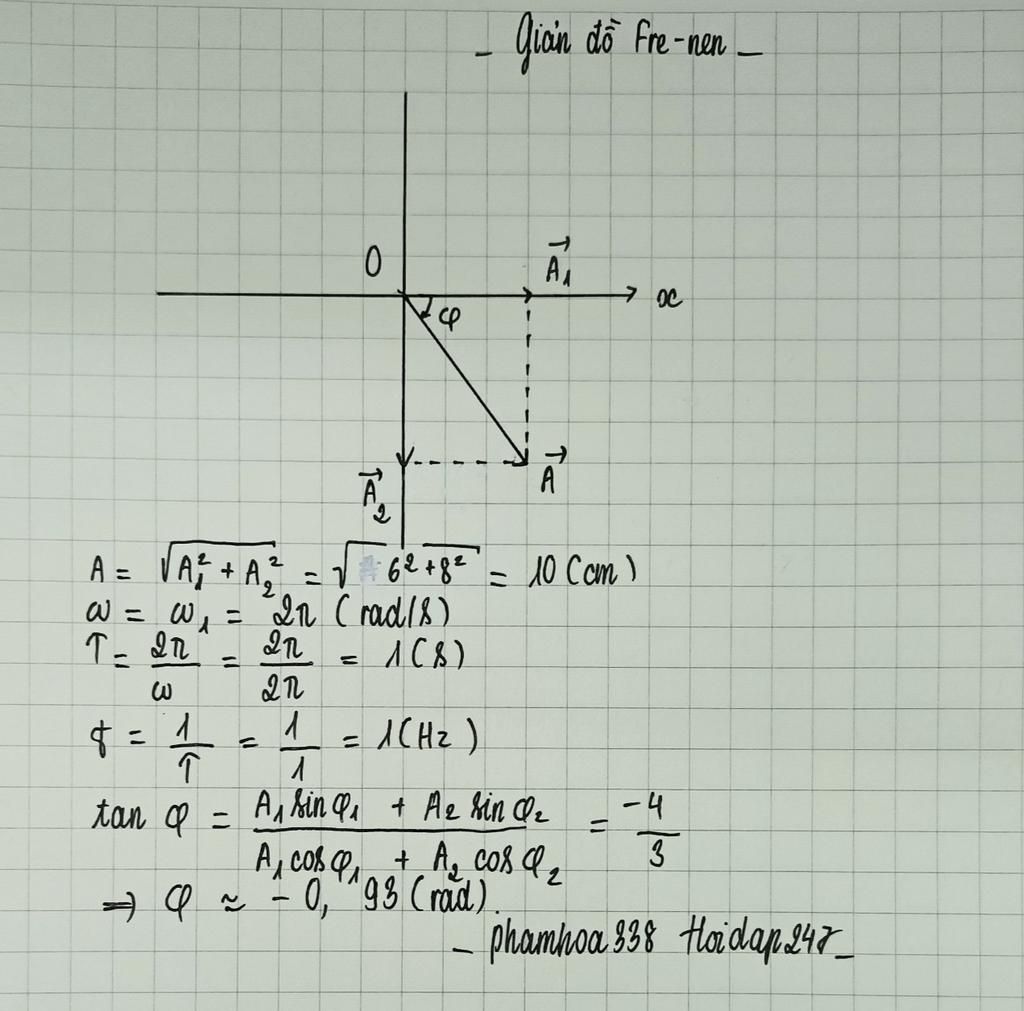 _ Giản đồ Fre-nen _
O
A₁
x
φ
A₂
A
A = √(A₁² + A₂²) = √(6² + 8²) = 10 (cm)
ω = ω₁ = 2π (rad/s)
T = 2π/ω = 2π/2π = 1 (s)
f = 1/T = 1/1 = 1 (Hz)
tan φ = (A₁ sin φ₁ + A₂ sin φ₂)/(A₁ cos φ₁ + A₂ cos φ₂) = -4/3
⇒ φ ≈ -0,93 (rad).
_ phamhoa338 Hoidap247_